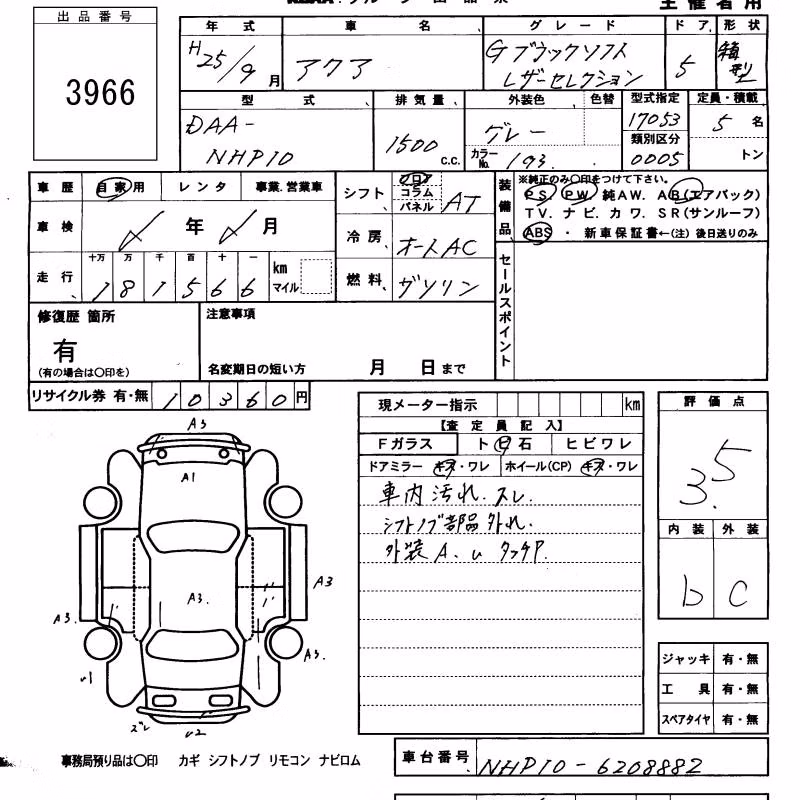 主催者用
出品番号
3966
年式 車名 グレード ドア 形状
H25/9月 アクア Gブラックソフトレザーセレクション 5
型式 排気量 外装色 色替 型式指定 定員・積載
DAA-NHP10 1500 C.C. グレー カラーNo. 193 17053 5名
類別区分 0005 トン
車歴 自家用 レンタ 事業.営業車
シフト フロア コラム パネル AT
装備品 ※純正のみ〇印をつけて下さい。
PS. PW. 純AW. AB(エアバック)
TV. ナビ. カワ. SR(サンルーフ)
ABS ・ 新車保証書←(注) 後日送りのみ
車検 年 月
冷房 オートAC
走行 十万 万 千 百 十 一
181566 km マイル
燃料 ガソリン
セールスポイント
修復歴 箇所
有
(有の場合は〇印を)
注意事項
名変期日の短い方 月 日まで
リサイクル券 有・無 10360円
現メーター指示 km
【査定員記入】
Fガラス ト ヒ 石 ヒビワレ
ドアミラー キズ・ワレ ホイール(CP) キズ・ワレ
車内汚れ.スレ.
シフトノブ部品外れ.
外装A.u タッチP.
評価点
3.5
内装 外装
b C
A3
A1
A3.
A3
A3.
A3.
u1
ズレ
u2
ジャッキ 有・無
工具 有・無
スペアタイヤ 有・無
車台番号 NHP10-6208882
事務局預り品は〇印 カギ シフトノブ リモコン ナビロム